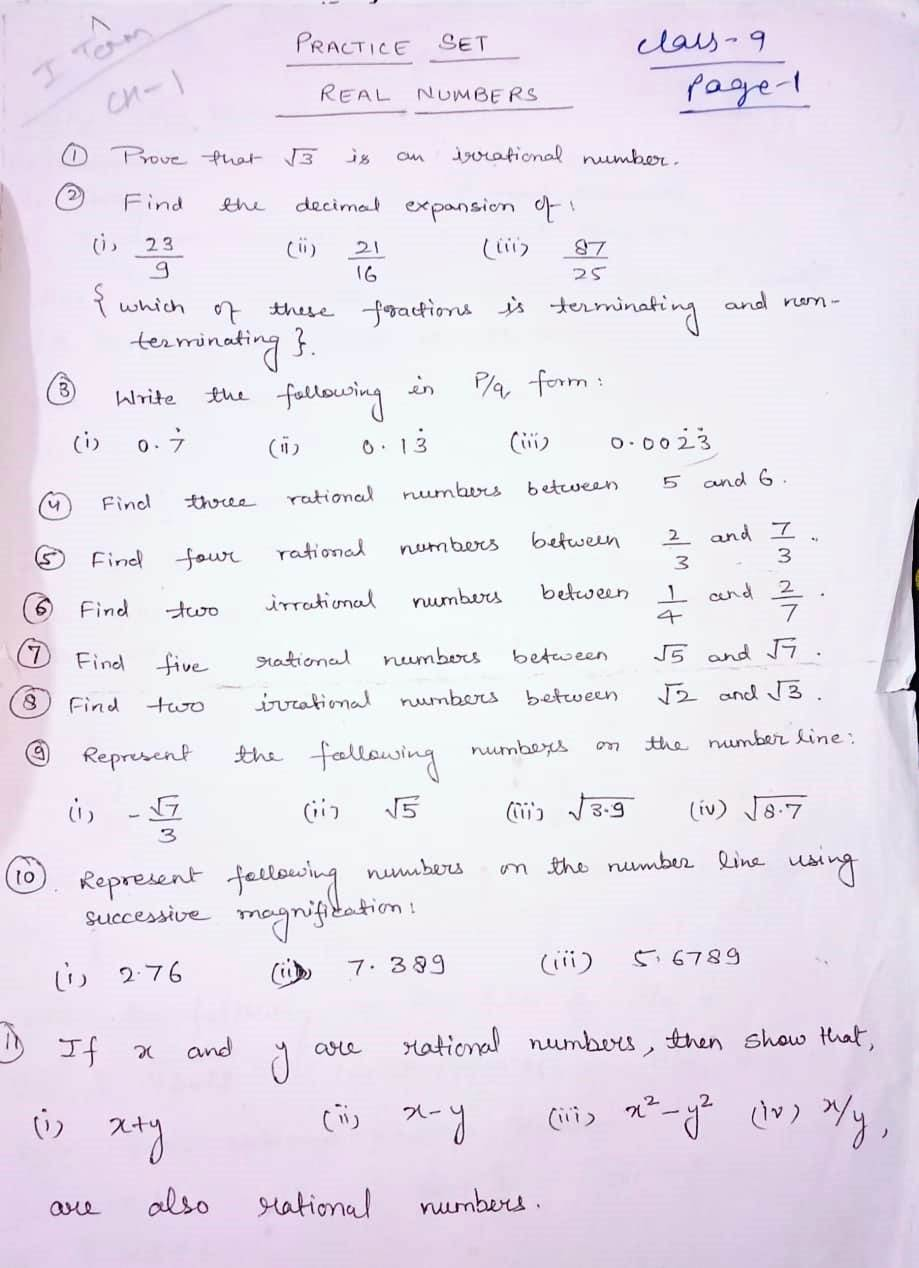 I Term
CH-1
PRACTICE SET
REAL NUMBERS
Class-9
Page-1
① Prove that √3 is an irrational number.
② Find the decimal expansion of :
(i) 23/9 (ii) 21/16 (iii) 87/25
{ which of these fractions is terminating and non-
terminating }.
③ Write the following in P/q form :
(i) 0.7̇ (ii) 0.13̇ (iii) 0.002̇3̇
④ Find three rational numbers between 5 and 6.
⑤ Find four rational numbers between 2/3 and 7/3.
⑥ Find two irrational numbers between 1/4 and 2/7.
⑦ Find five rational numbers between √5 and √7.
⑧ Find two irrational numbers between √2 and √3.
⑨ Represent the following numbers on the number line:
(i) -√7/3 (ii) √5 (iii) √3.9 (iv) √8.7
⑩. Represent following numbers on the number line using
successive magnification :
(i) 2.76 (ii) 7.389 (iii) 5.6789
⑪ If x and y are rational numbers, then show that,
(i) x+y (ii) x-y (iii) x²-y² (iv) x/y,
are also rational numbers.